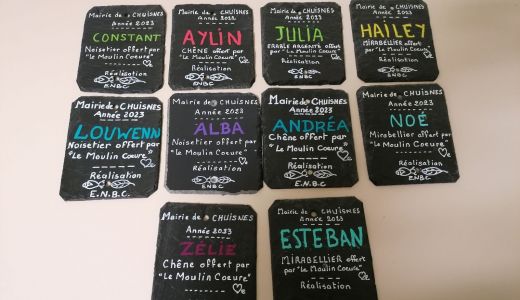 Mairie de CHUISNES
Année 2023
CONSTANT
Noisetier offert par
"Le Moulin Coeure"
Réalisation
ENBC
Mairie de CHUISNES
Année 2023
AYLIN
CHÊNE offert par
"Le Moulin Coeure"
Réalisation
ENBC
Mairie de CHUISNES
Année 2023
JULIA
ERABLE ARGENTÉ offert
par "Le Moulin Coeure"
Réalisation
ENBC
Mairie de CHUISNES
Année 2023
HAILEY
MIRABELLIER offert
par "Le Moulin Coeure"
Réalisation
ENBC
Mairie de CHUISNES
Année 2023
LOUWENN
Noisetier offert par
"Le Moulin Coeure"
Réalisation
E.N.B.C.
Mairie de CHUISNES
Année 2023
ALBA
Noisetier offert par
"Le Moulin Coeure"
Réalisation
ENBC
Mairie de CHUISNES
Année 2023
ANDRÉA
Chêne offert par
"Le Moulin Coeure"
Réalisation
E.N.B.C.
Mairie de CHUISNES
Année 2023
NOÉ
Mirabellier offert par
"Le Moulin Coeure"
Réalisation
ENBC
Mairie de CHUISNES
Année 2023
ZÉLIE
Chêne offert par
"Le Moulin Coeure"
Réalisation
Mairie de CHUISNES
Année 2023
ESTEBAN
MIRABELLIER offert
par "Le Moulin Coeure"
Réalisation